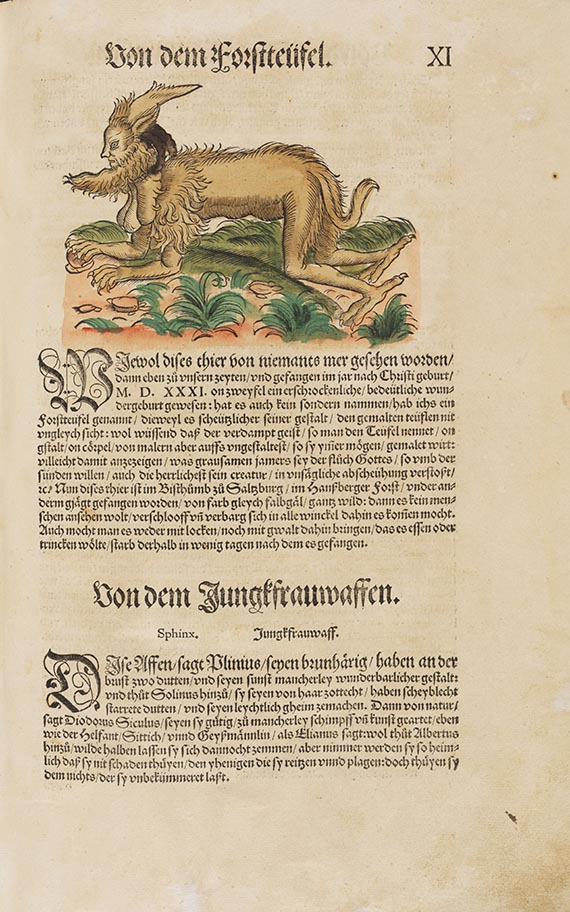 Von dem Forstteüfel. XI
WJewol dises thier von niemants mer gesehen worden/
dann eben zů vnsern zeyten/vnd gefangen im jar nach Christi geburt/
M. D. XXXI. on zweyfel ein erschrockenliche/bedeütliche wun-
dergeburt gewesen: hat es auch kein sondern nammen/hab ichs ein
Forstteüfel genannt/dieweyl es scheützlicher seiner gestalt/den gemalten teüflen nit
vngleych sicht: wol wüssend daß der verdampt geist/so man den Teüfel nennet/on
gstalt/on cörpel/von malern aber auffs vngestaltest/so sy yṁer mögen/gemalet wirt:
villeicht damit anzezeigen/was grausamen jamers sey der flůch Gottes/so vmb der
sünden willen/auch die herrlichest sein creatur/in vnsägliche abscheühung verstoßt/
ꝛc/Nun dises thier ist im Bisthůmb zů Saltzburg/im Hanßberger Forst/vnder an-
derm gjägt gefangen worden/von farb gleych falbgäl/gantz wild: dann es kein men-
schen ansehen wolt/verschlooff vn̄ verbarg sich in alle winckel dahin es kom̄en mocht.
Auch mocht man es weder mit locken/noch mit gwalt dahin bringen/das es essen oder
trincken wölte/starb derhalb in wenig tagen nach dem es gefangen.
Von dem Jungkfrauwaffen.
Sphinx. Jungkfrauwaff.
DJse Affen/sagt Plinius/seyen brunhärig/haben an der
brust zwo dutten/vnd seyen sunst mancherley wunderbarlicher gestalt:
vnd thůt Solinus hinzů/sy seyen von haar zottecht/haben scheyblecht
starrete dutten/vnd seyen leychtlich gheim zemachen. Dann von natur/
sagt Diodorus Siculus/seyen sy gütig/zů mancherley schimpff vn̄ kunst geartet/eben
wie der Helfant/Sittich/vnnd Geyßmännlin/als Elianus sagt: wol thůt Albertus
hinzů/wilde halben lassen sy sich dannocht zemmen/aber nimmer werden sy so heim-
lich daß sy nit schaden thüyen/den yhenigen die sy reitzen vnnd plagen: doch thüyen sy
dem nichts/der sy vnbekümmeret laßt.